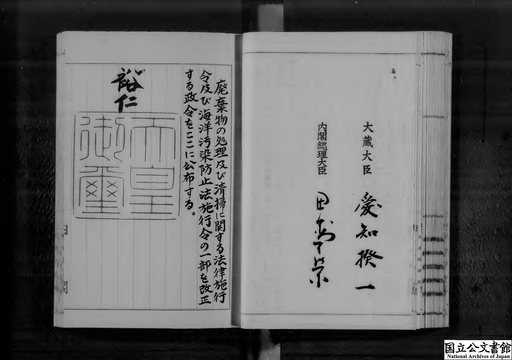 大蔵大臣 愛知揆一
内閣総理大臣 田中角榮
廃棄物の処理及び清掃に関する法律施行
令及び海洋汚染防止法施行令の一部を改正
する政令をここに公布する。
裕仁
天皇
御璽
国立公文書館
National Archives of Japan